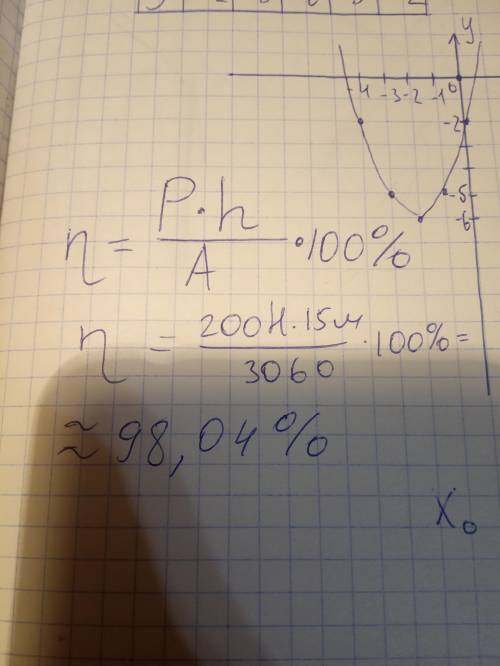 y
-4 -3 -2 -1 0
-2
-5
-6
η = P·h / A ·100%
η = 200Н·15м / 3060 ·100% =
≈ 98,04%
x₀